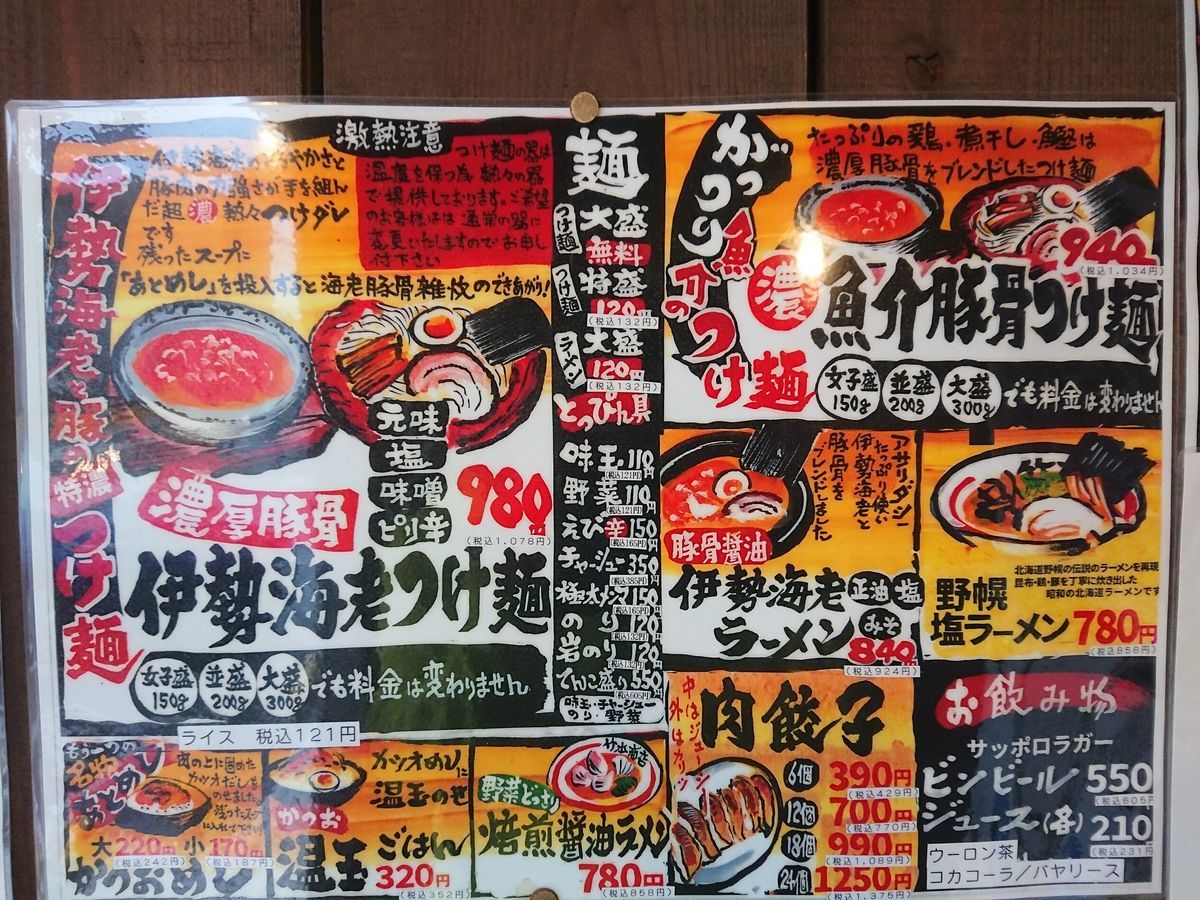 伊勢海老と豚の
特濃
つけ麺
激熱注意
豚肉の
さが手を組ん
だ超濃熱々つけダレ
です
残ったスープに
「あとめし」を投入すると海老豚骨雑炊のできあがり!
つけ麺の器は
温度を保つ為 熱々の器
で提供しております。ご希望
のお客様は通常の器に
変更いたしますのでお申し
付下さい
元味
塩
味噌
ピリ辛
980円
(税込1,078円)
濃厚豚骨
伊勢海老つけ麺
女子盛 150g
並盛 200g
大盛 300g
でも料金は変わりません
ライス 税込121円
麺
つけ麺 大盛 無料
つけ麺 特盛 120円
(税込132円)
ラーメン 大盛 120円
(税込132円)
とっぴん具
味玉 110円
(税込121円)
野菜 110円
(税込121円)
えび辛 150円
(税込165円)
チャーシュー 350円
(税込385円)
極太メンマ 150円
(税込165円)
のり 120円
(税込132円)
岩のり 120円
(税込132円)
てんこ盛り 550円
(税込605円)
味玉・チャーシュー
のり・野菜
がっつり魚介の
つけ麺
たっぷりの鶏・煮干し・鰹は
濃厚豚骨をブレンドしたつけ麺
940円
(税込1,034円)
濃 魚介豚骨つけ麺
女子盛 150g
並盛 200g
大盛 300g
でも料金は変わりません
アサリダシー
たっぷり使い
伊勢海老と
豚骨を
ブレンドしました
豚骨醤油
伊勢海老
ラーメン
正油 塩
みそ
840円
(税込924円)
北海道野幌の伝説のラーメンを再現
昆布・鶏・豚を丁寧に炊き出した
昭和の北海道ラーメンです
野幌
塩ラーメン 780円
(税込858円)
もう一つの
名物
あとめし
肉の上に固めた
カツオだしを
のせました。
残ったスープ
に入れて下さい!
大 220円
(税込242円)
小 170円
(税込187円)
かつおめし
カツオめしに
温玉のせ
かつお
温玉ごはん
320円
(税込352円)
竹本商店
野菜どっさり
焙煎醤油ラーメン
780円
(税込858円)
中はジューシー
外はカリッ
肉餃子
6個 390円
(税込429円)
12個 700円
(税込770円)
18個 990円
(税込1,089円)
24個 1250円
(税込1,375円)
お飲み物
サッポロラガー
ビンビール 550
(税込605円
ジュース(各) 210
(税込231円
ウーロン茶
コカコーラ/バヤリース